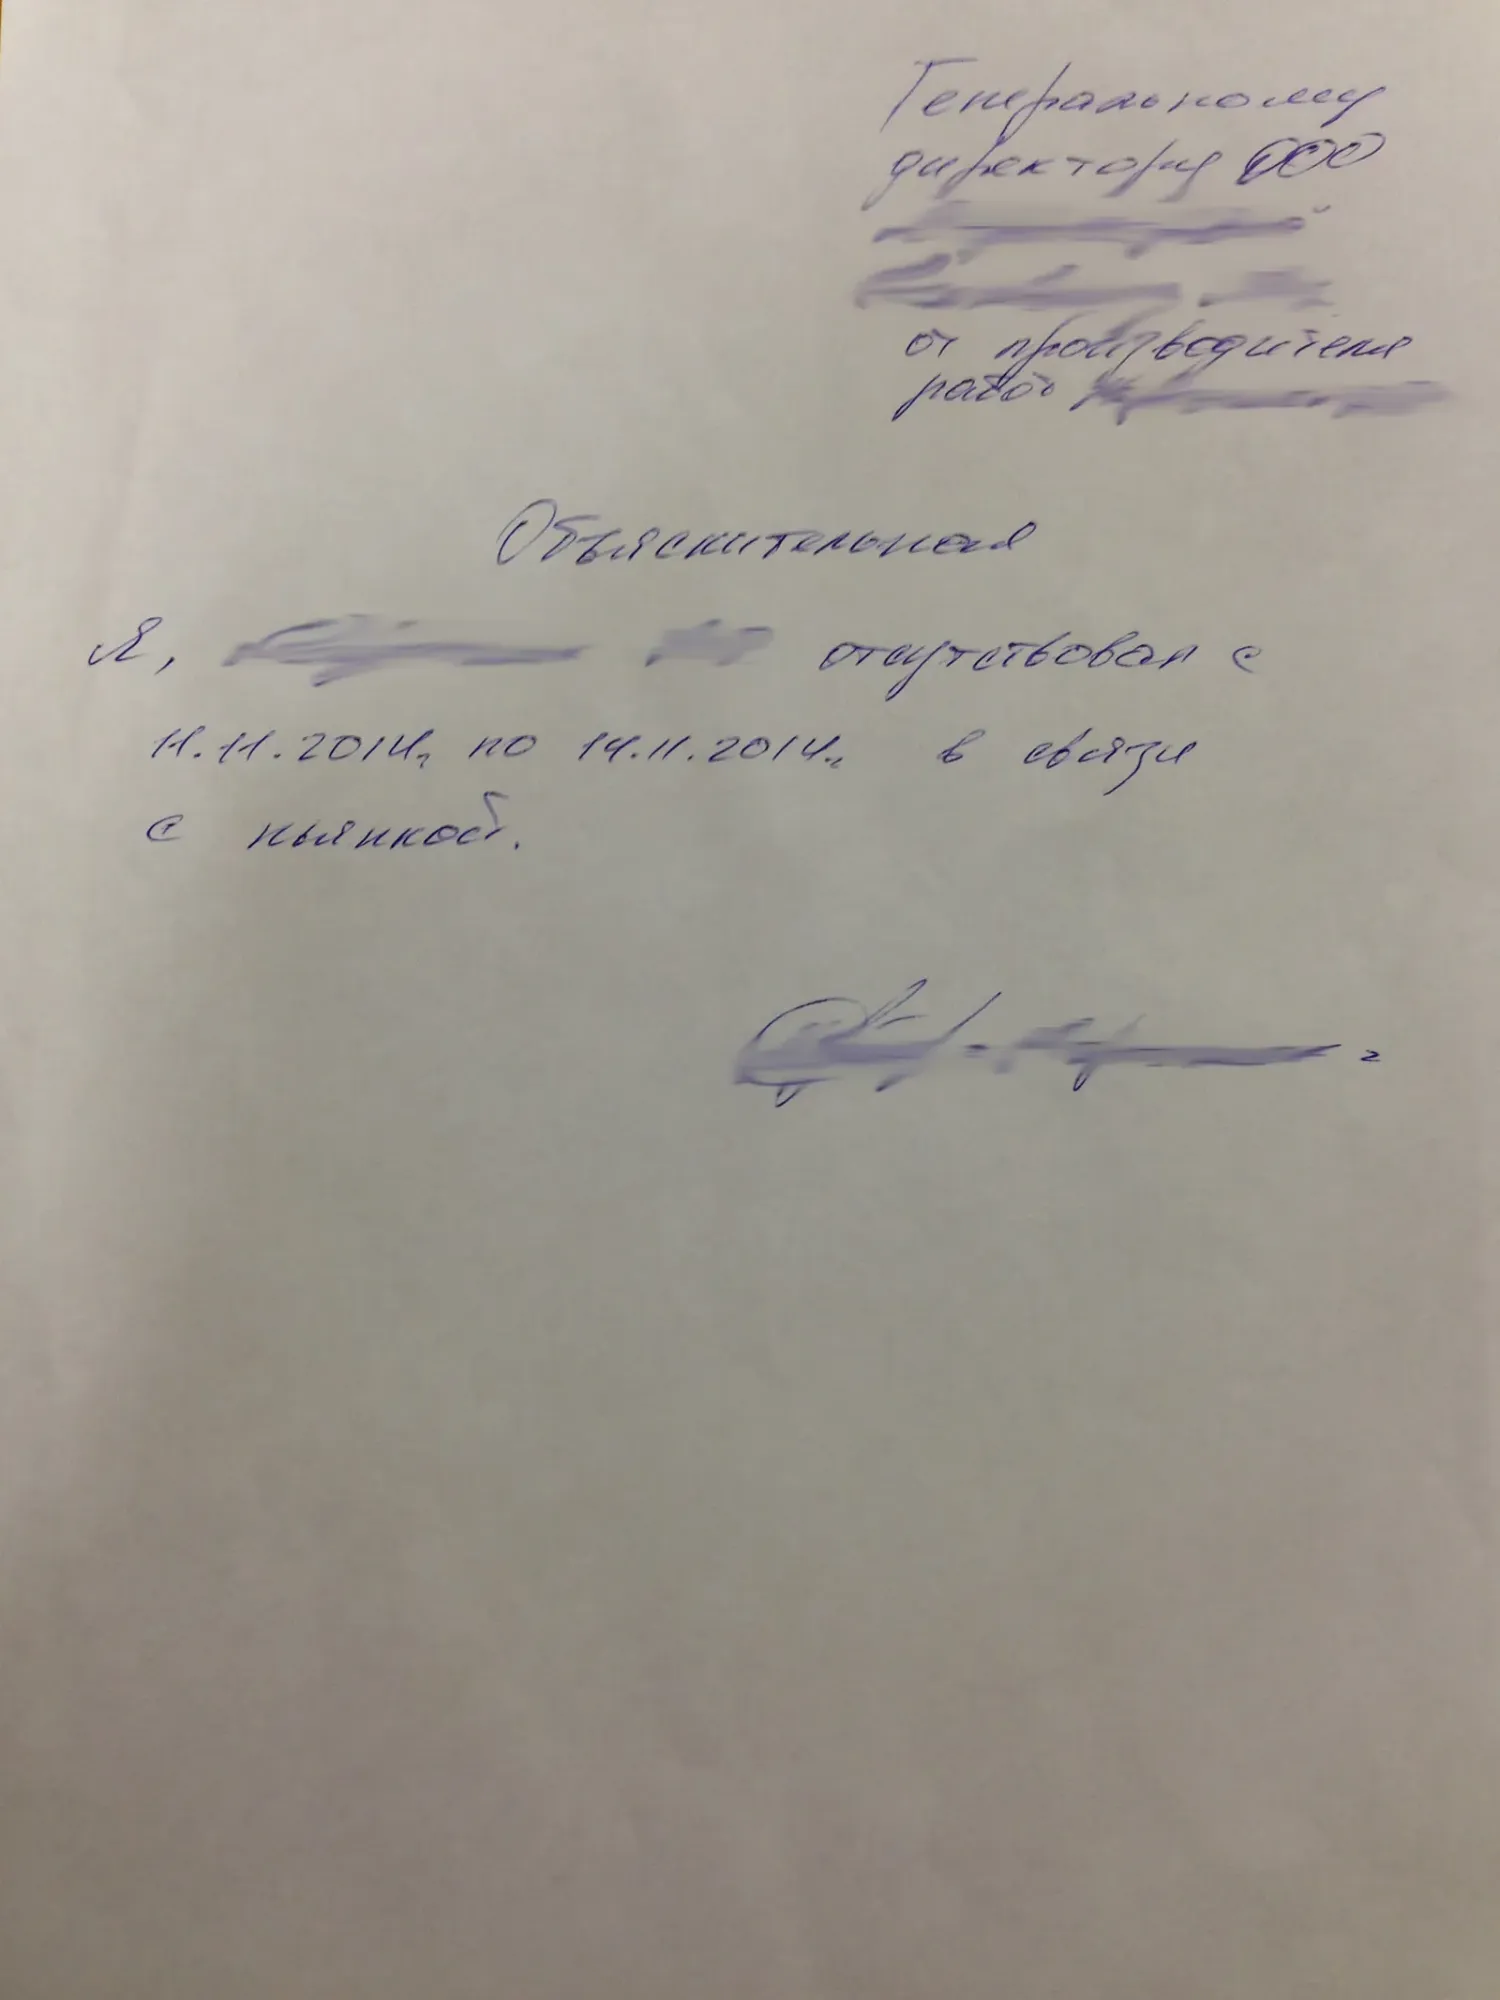 Генеральному
директору ООО
от производителя
работ
Объяснительная
Я, отсутствовал с
11.11.2014г. по 14.11.2014г. в связи
с пьянкой.